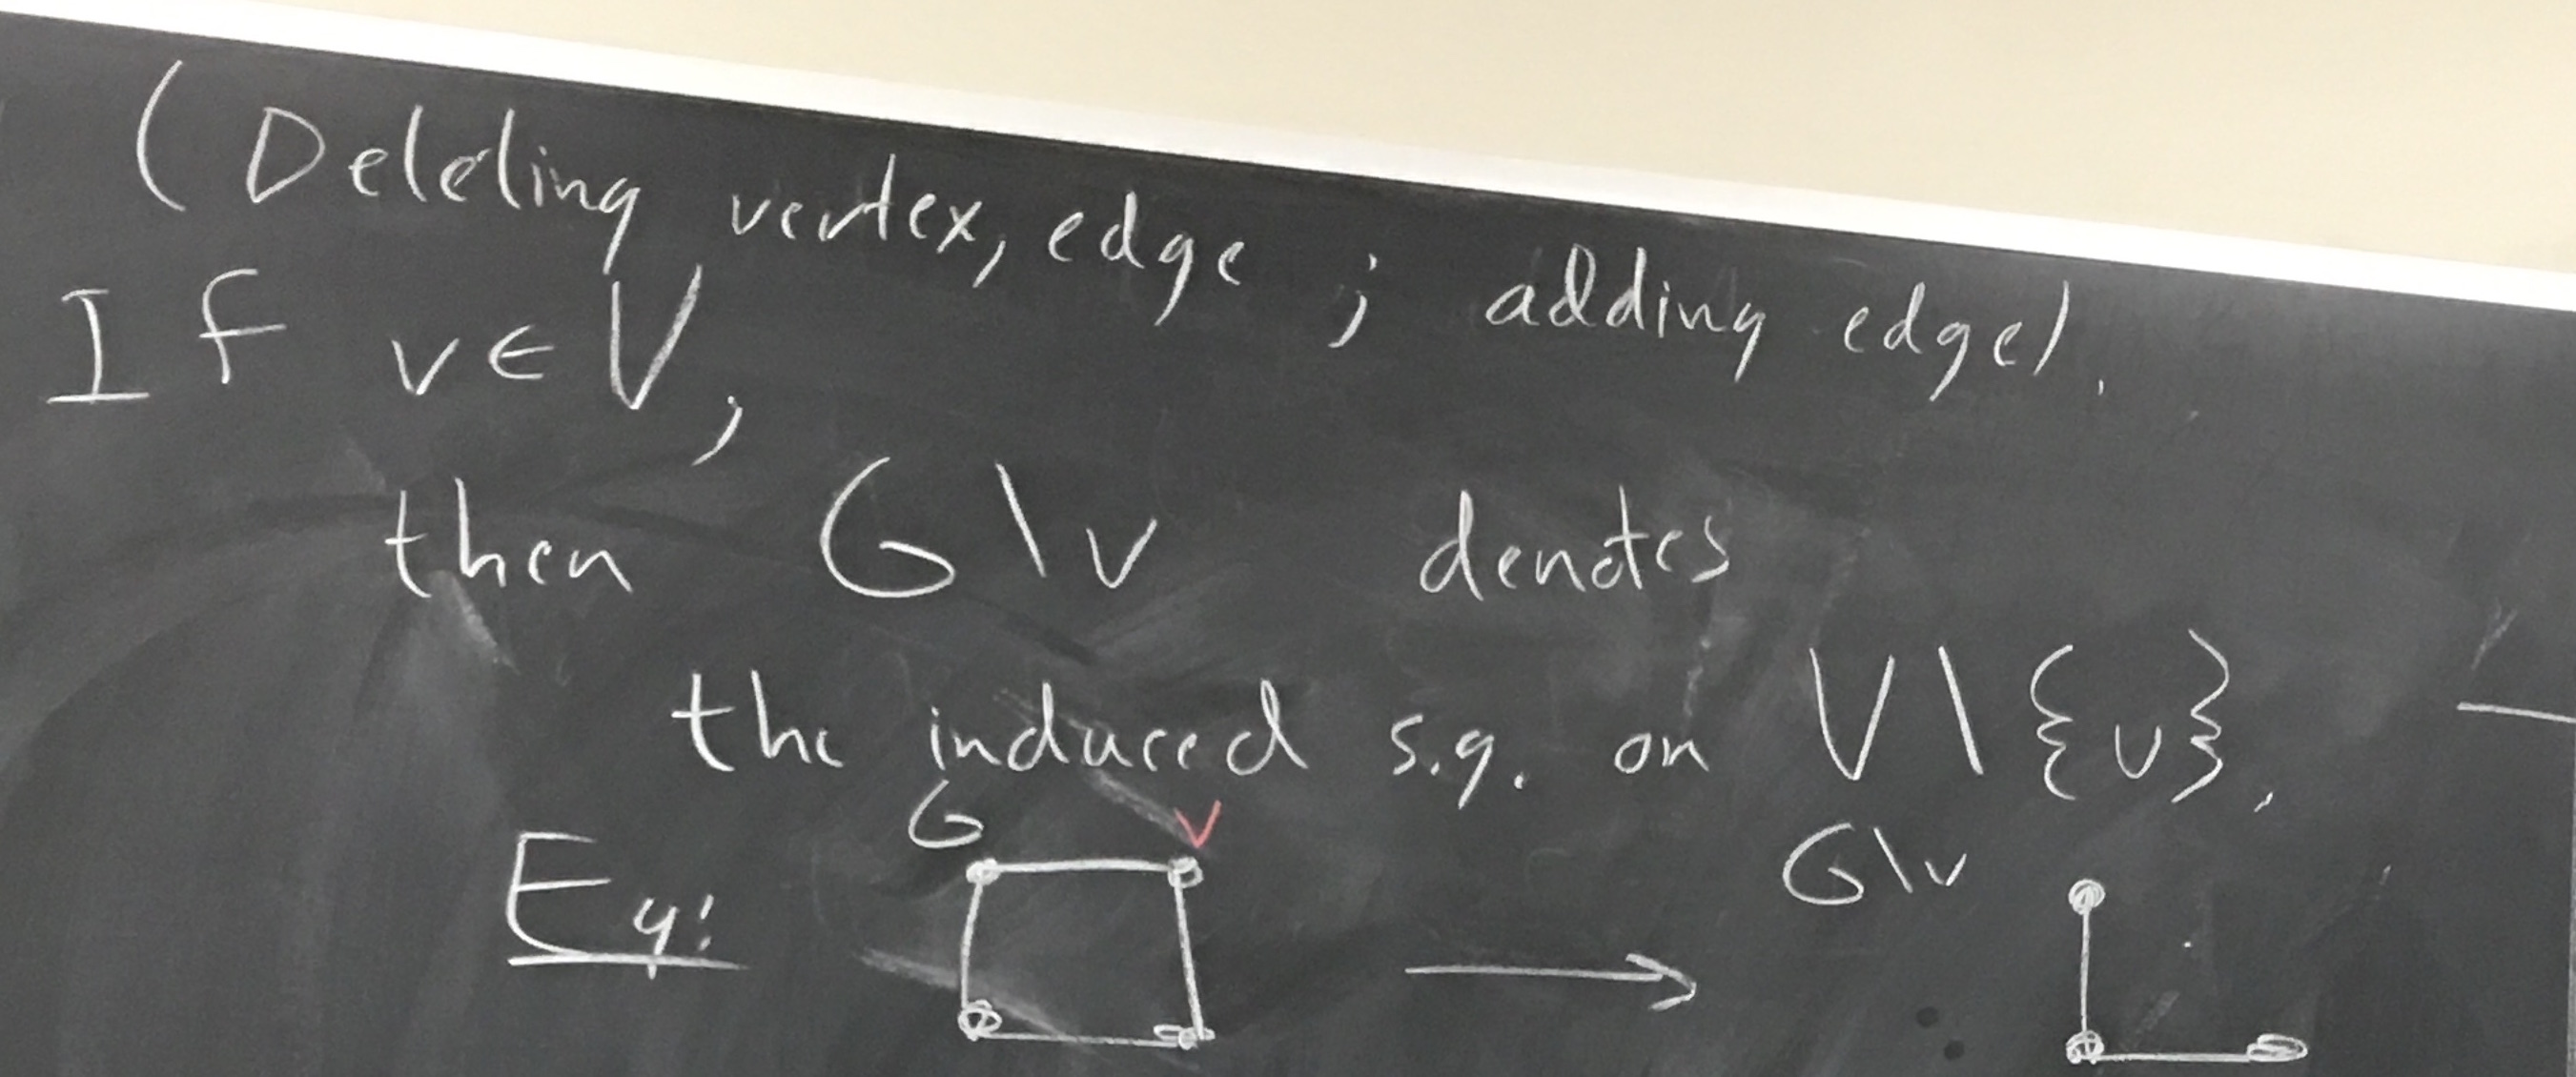 (Deleting vertex, edge ; adding edge).
If v ∈ V,
then G \ v denotes
the induced s.g. on V \ {v}.
G v G\v
Eg: